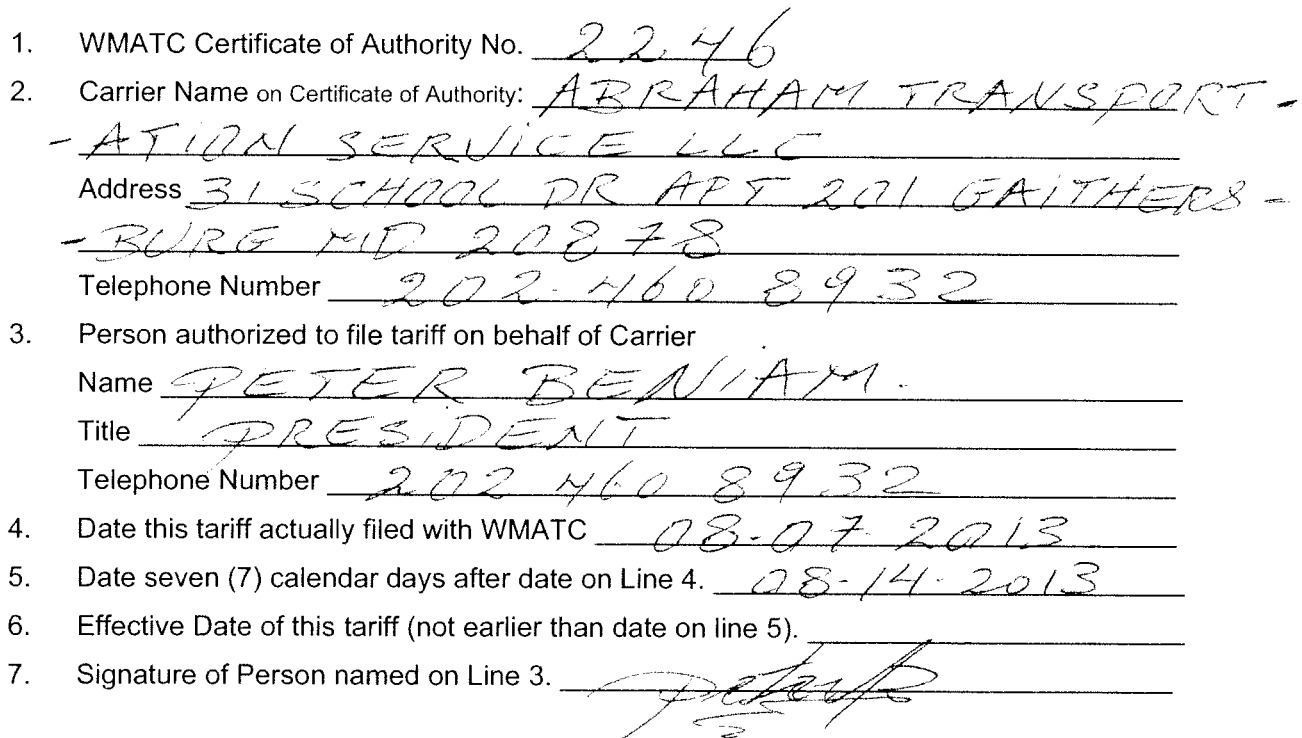 1. WMATC Certificate of Authority No. 2246
2. Carrier Name on Certificate of Authority: ABRAHAM TRANSPORT-
-ATION SERVICE LLC
Address 31 SCHOOL DR APT 201 GAITHERS-
-BURG MD 20878
Telephone Number 202-460 8932
3. Person authorized to file tariff on behalf of Carrier
Name PETER BENIAM.
Title PRESIDENT
Telephone Number 202 460 8932
4. Date this tariff actually filed with WMATC 08-07-2013
5. Date seven (7) calendar days after date on Line 4. 08-14-2013
6. Effective Date of this tariff (not earlier than date on line 5).
7. Signature of Person named on Line 3.